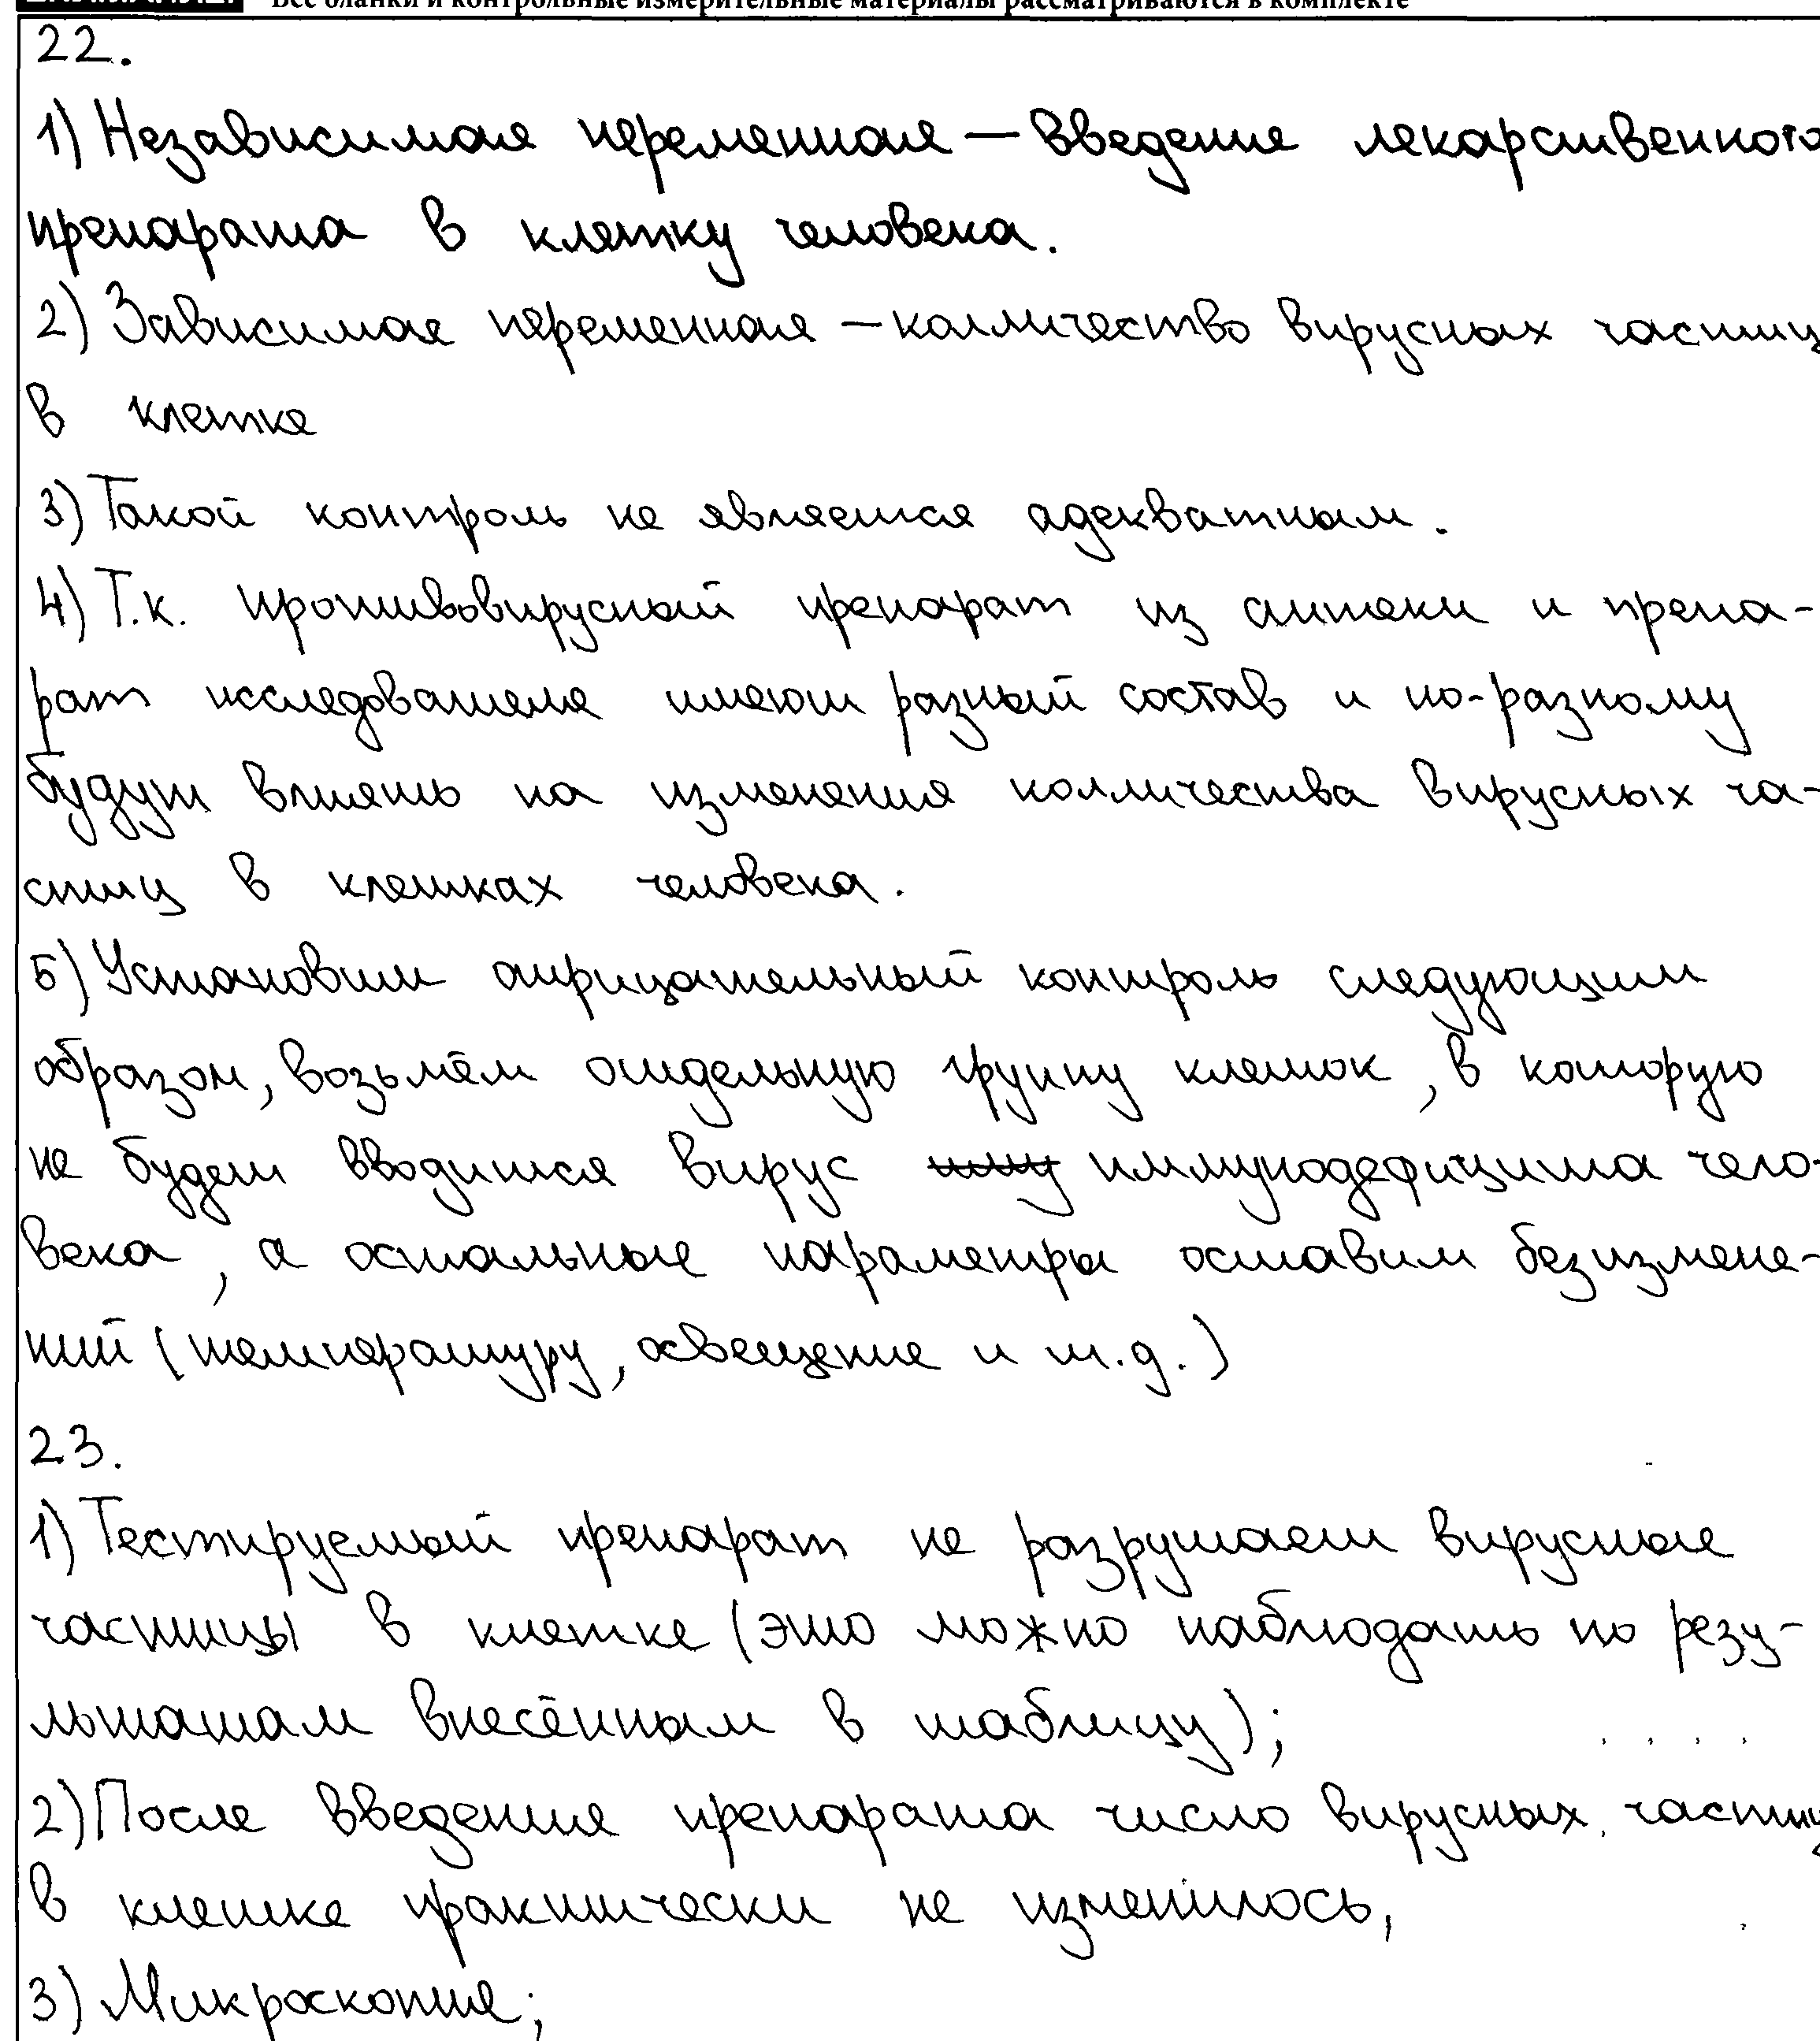 Все бланки и контрольные измерительные материалы рассматриваются в комплекте
22.
1) Независимая переменная – введение лекарственного
препарата в клетку человека.
2) Зависимая переменная – колличество вирусных частиц
в клетке
3) Такой контроль не является адекватным.
4) Т.к. противовирусный препарат из аптеки и препа-
рат исследователя имеют разный состав и по-разному
будут влиять на изменения колличества вирусных ча-
стиц в клетках человека.
5) Установим отрицательный контроль следующим
образом, возьмём отдельную группу клеток, в которую
не будет вводится вирус иммунодефицита чело-
века, а остальные параметры оставим безизмене-
ний (температуру, освещение и т.д.)
23.
1) Тестируемый препарат не разрушает вирусные
частицы в клетке (это можно наблюдать по резу-
льтатам внесённым в таблицу);
2) После введения препарата число вирусных частиц
в клетке практически не изменилось,
3) Микроскопия;